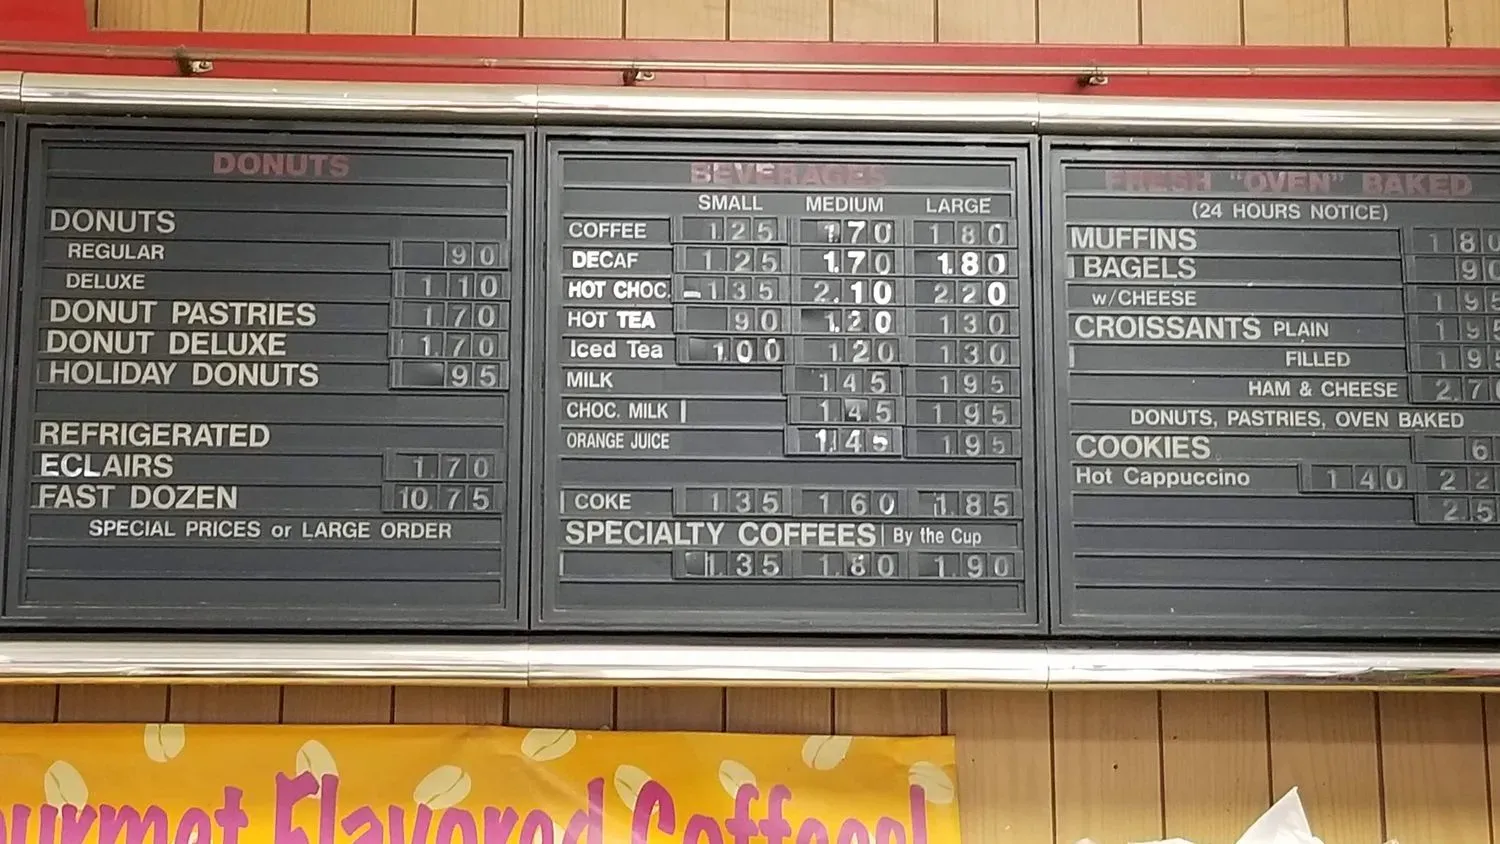 DONUTS
DONUTS
REGULAR 90
DELUXE 1.10
DONUT PASTRIES 1.70
DONUT DELUXE 1.70
HOLIDAY DONUTS 95
REFRIGERATED
ECLAIRS 1.70
FAST DOZEN 10.75
SPECIAL PRICES or LARGE ORDER
BEVERAGES
SMALL MEDIUM LARGE
COFFEE 125 170 180
DECAF 125 1.70 1.80
HOT CHOC. 135 2.10 220
HOT TEA 90 1.20 130
Iced Tea 1.00 1.20 130
MILK 145 195
CHOC. MILK 1.45 195
ORANGE JUICE 1.45 195
COKE 135 160 1.85
SPECIALTY COFFEES By the Cup
1.35 1.80 1.90
FRESH "OVEN" BAKED
(24 HOURS NOTICE)
MUFFINS 180
BAGELS 90
w/CHEESE 195
CROISSANTS PLAIN 195
FILLED 195
HAM & CHEESE 2.70
DONUTS, PASTRIES, OVEN BAKED
COOKIES 6
Hot Cappuccino 140 22
2.5
ourmet Flavored Coffees!